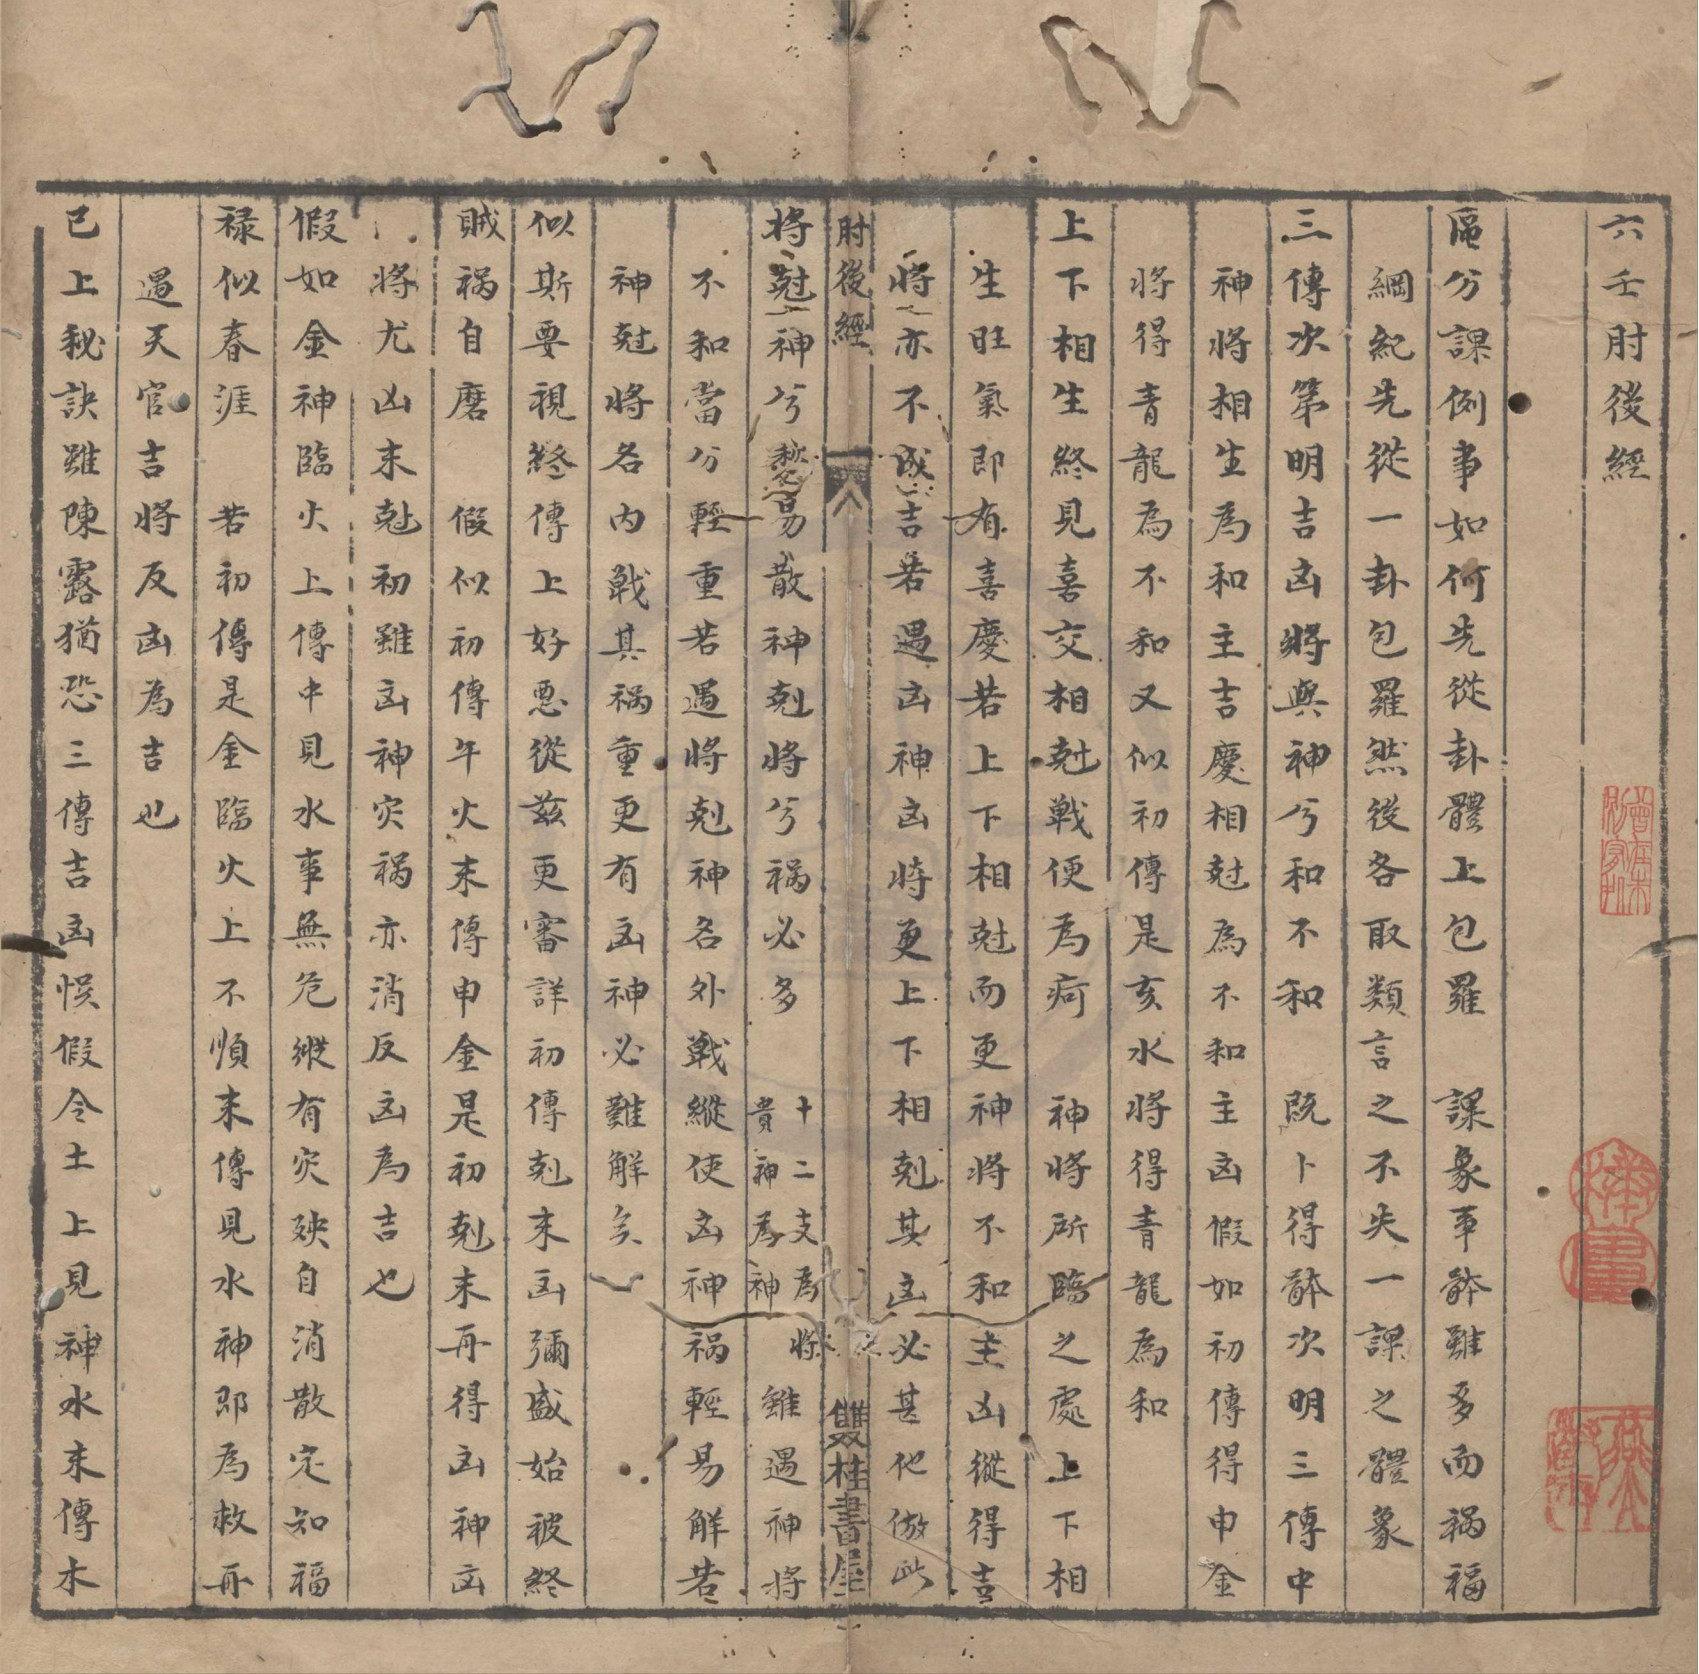 六壬肘後經
區分課例事如何先從卦體上包羅　課象事骵雖多而禍福
綱紀先從一卦包羅然後各取類言之不失一課之體象
三傳次第明吉凶將與神兮和不和　既卜得骵次明三傳中
神將相生為和主吉慶相尅為不和主凶假如初傳得申金
將得青龍為不和又似初傳是亥水將得青龍為和
上下相生終見喜交相尅戰便為疴　神將所臨之處上下相
生旺氣即有喜慶若上下相尅而更神將不和主凶縱得吉
將之亦不成吉若遇凶神凶將更上下相剋其凶必甚他倣此
肘後經
雙桂書屋
將尅神兮愁易散神剋將兮禍必多　十二支為神將貴神為神　雖遇神將
不和當分輕重若遇將剋神名外戰縱使凶神禍輕易解若
神尅將名內戰其禍重更有凶神必難解矣
似斯要視終傳上好惡從兹更審詳初傳剋末凶彌盛始被終
賊禍自磨　假似初傳午火末傳申金是初剋末再得凶神凶
將尤凶末尅初雖凶神灾禍亦消反凶為吉也
假如金神臨火上傳中見水事無危縱有灾殃自消散定知福
禄似春涯　若初傳是金臨火上不順末傳見水神即為救再
遇天官吉將反凶為吉也
已上秘訣雖陳露猶恐三傳吉凶悞假令土上見神水末傳木